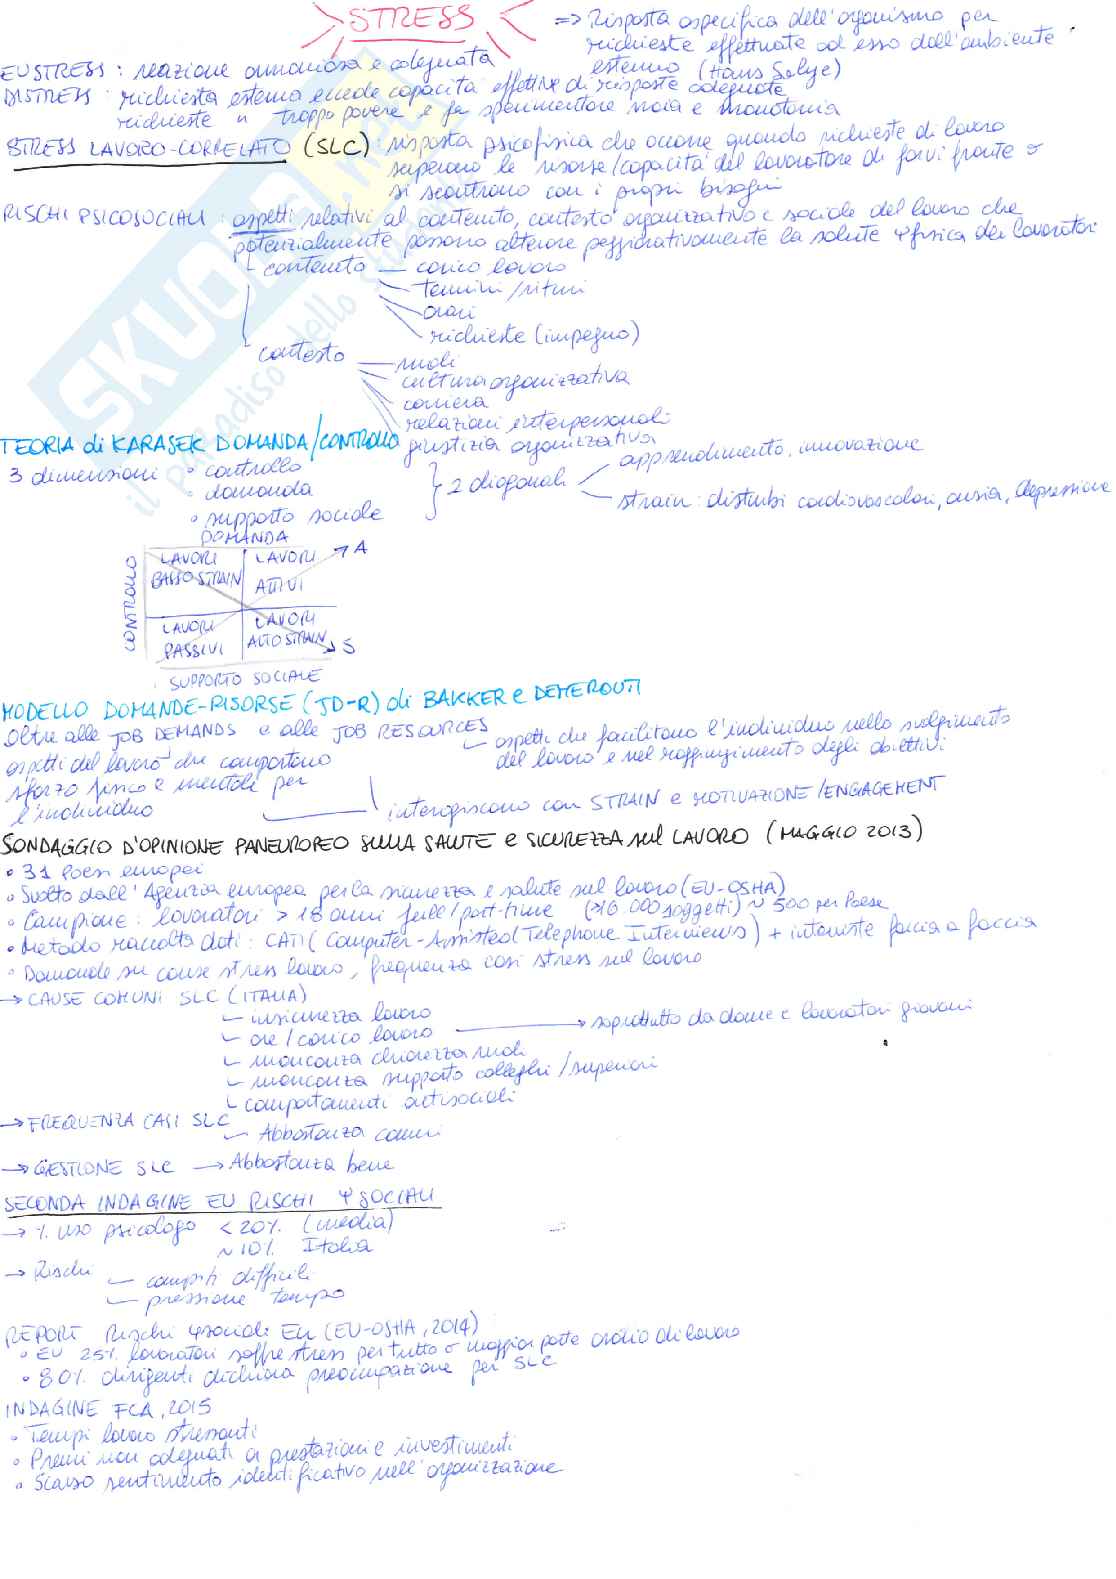 STRESS
=> Risposta aspecifica dell'organismo per
richieste effettuate ad esso dall'ambiente
esterno (Hans Selye)
EUSTRESS : reazione armoniosa e adeguata
DISTRESS : richiesta esterna eccede capacità effettive di risposte adeguate
richieste troppo povere e fa sperimentare noia e monotonia
STRESS LAVORO-CORRELATO (SLC) : risposta psicofisica che occorre quando richieste di lavoro
superano le risorse/capacità del lavoratore di farvi fronte o
si scontrano con i propri bisogni
RISCHI PSICOSOCIALI : aspetti relativi al contenuto, contesto organizzativo e sociale del lavoro che
potenzialmente possono alterare peggiorativamente la salute ψfisica dei lavoratori
contenuto - carico lavoro
- termini/ritmi
- orari
- richieste (impegno)
contesto - ruoli
- cultura organizzativa
- carriera
- relazioni interpersonali
- giustizia organizzativa
TEORIA di KARASEK DOMANDA/CONTROLLO
3 dimensioni • controllo
• domanda
• supporto sociale
} 2 diagonali
apprendimento, innovazione
strain : disturbi cardiovascolari, ansia, depressione
DOMANDA
CONTROLLO
LAVORI BASSO STRAIN
LAVORI ATTIVI
A
LAVORI PASSIVI
LAVORI ALTO STRAIN
S
SUPPORTO SOCIALE
MODELLO DOMANDE-RISORSE (JD-R) di BAKKER e DEMEROUTI
Oltre alle JOB DEMANDS e alle JOB RESOURCES
aspetti che facilitano l'individuo nello svolgimento
del lavoro e nel raggiungimento degli obiettivi
aspetti del lavoro che comportano
sforzo fisico e mentale per
l'individuo
interagiscono con STRAIN e MOTIVAZIONE/ENGAGEMENT
SONDAGGIO D'OPINIONE PANEUROPEO SULLA SALUTE e SICUREZZA sul LAVORO (MAGGIO 2013)
• 31 Paesi europei
• Svolto dall'Agenzia europea per la sicurezza e salute sul lavoro (EU-OSHA)
• Campione : lavoratori > 18 anni full/part-time (>16.000 soggetti) ~ 500 per Paese
• Metodo raccolta dati : CATI (Computer-Assisted Telephone Interviews) + interviste faccia a faccia
• Domande su cause stress lavoro, frequenza casi stress sul lavoro
→ CAUSE COMUNI SLC (ITALIA)
- insicurezza lavoro
- ore/carico lavoro → soprattutto da donne e lavoratori giovani
- mancanza chiarezza ruoli
- mancanza supporto colleghi/superiori
- comportamenti antisociali
→ FREQUENZA CASI SLC
- Abbastanza comuni
→ GESTIONE SLC → Abbastanza bene
SECONDA INDAGINE EU RISCHI ψSOCIALI
→ % uso psicologo < 20% (media)
~ 10% Italia
→ Rischi - compiti difficili
- pressione tempo
REPORT Rischi ψsociali EU (EU-OSHA, 2014)
• EU 25% lavoratori soffre stress per tutto o maggior parte orario di lavoro
• 80% dirigenti dichiara preoccupazione per SLC
INDAGINE FCA, 2015
• Tempi lavoro stressanti
• Premi non adeguati a prestazioni e investimenti
• Scarso sentimento identificativo nell'organizzazione
SKUOLA.net
il paradiso dello studente